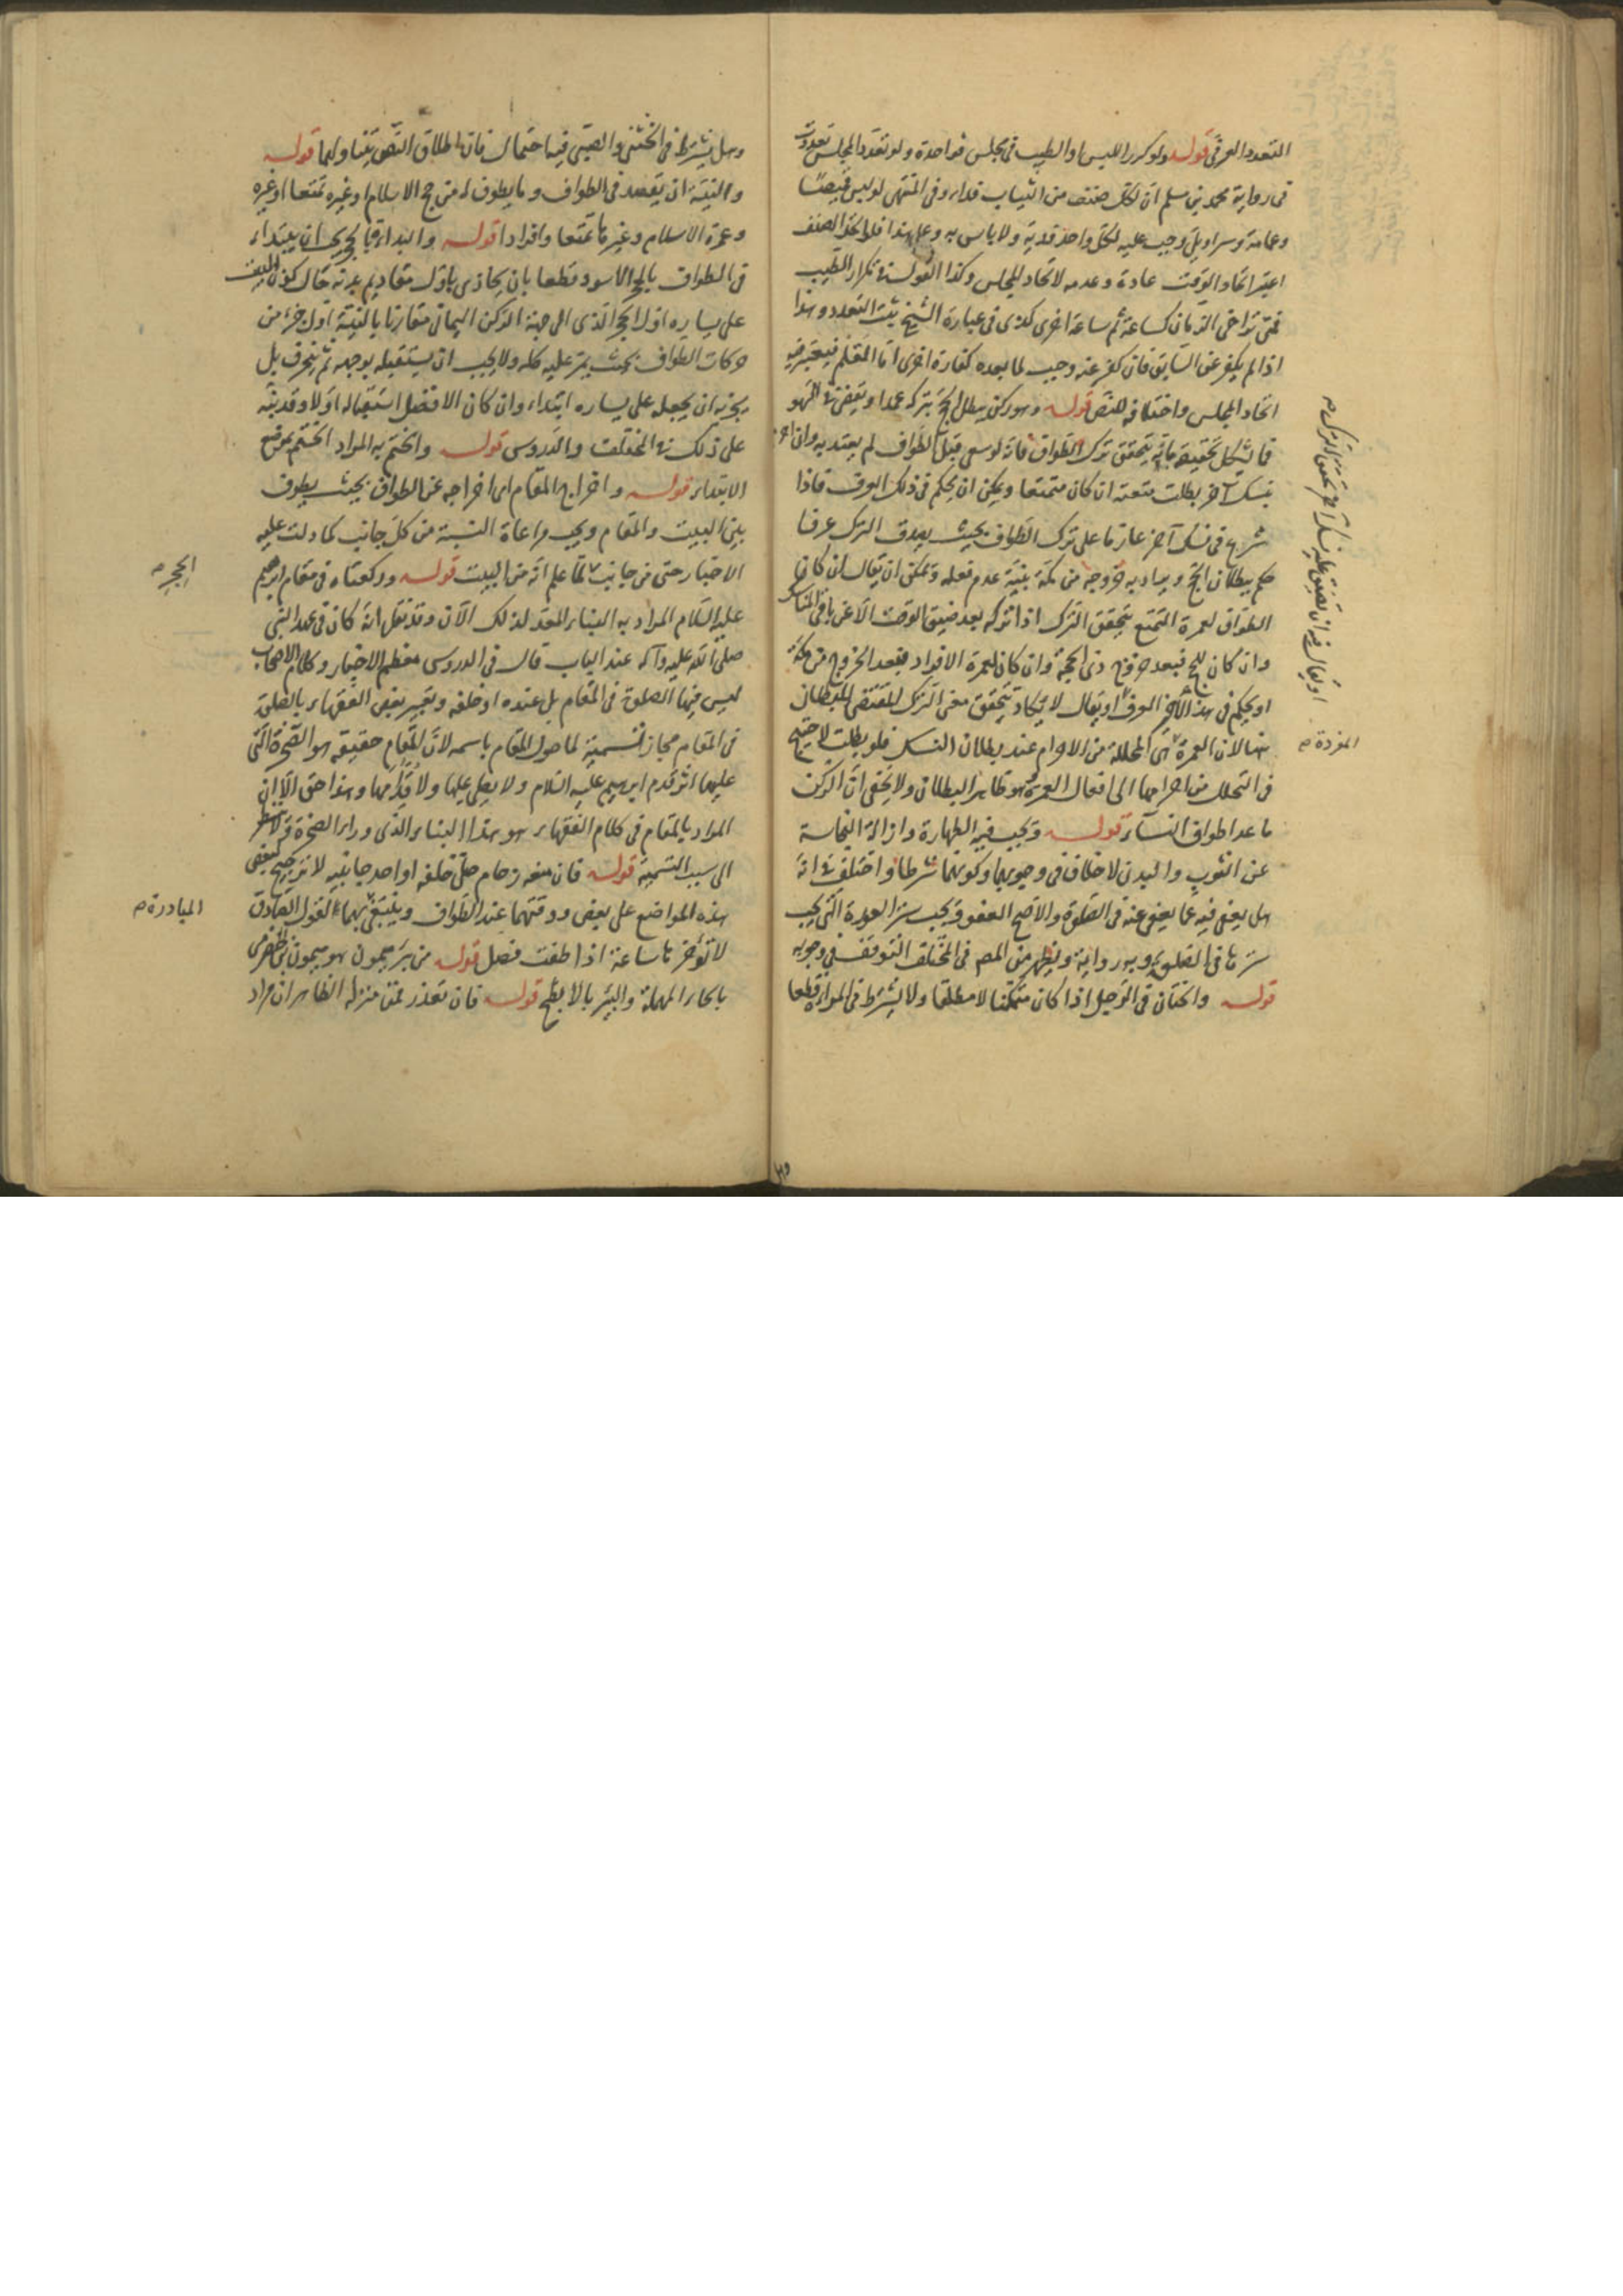 التعدد العرفي قوله ولو كرر اللبس او الطيب في مجلس فواحدة ولو تعدد المجلس تعددت
في رواية محمد بن مسلم ان لكل صنف من الثياب فداء وفي المنتهى لو لبس قميصا
وعمامة وسراويل وجب عليه لكل واحد فدية ولا باس به وعلى هذا فلو اتحد الصنف
اعتبر اتحاد الوقت عادة وعدمه لاتحاد المجلس وكذا القول في تكرار الطيب
فمتى تراخى الزمان كساعة ثم ساعة اخرى كذى في عبارة الشيخ يثبت التعدد وهذا
اذا لم يكفر عن السابق فان كفر عنه وجب لما بعده كفارة اخرى اما القلم فيعتبر فيه
اتحاد المجلس واختلافه للنص قوله وهو ركن يبطل الحج بتركه عمدا ويقضى في السهو
قد يشكل تحقيقه بانه يتحقق ترك الطواف فانه لو سعى قبل الطواف لم يعتد به وان احرم
بنسك آخر بطلت متعته ان كان متمتعا ويمكن ان يحكم في ذلك العرف فاذا
شرع في نسك آخر عازما على ترك الطواف بحيث يصدق الترك عرفا
حكم ببطلان الحج ويساويه خروجه من مكة بنية عدم فعله ويمكن ان يقال ان كان
الطواف لعمرة التمتع يتحقق الترك اذا تركه بعد ضيق الوقت الا عن باقي المناسك
وان كان للحج فبعد خروج ذي الحجة وان كان لعمرة الافراد فبعد الخروج من مكة
او يحكم في هذا الاخير العرف او يقال لا يكاد يتحقق معنى الترك المقتضي للبطلان
هنا لان العمرة هي المحللة من الاحرام عند بطلان النسك فلو بطلت لاحتيج
في التحلل من احرامها الى افعال العمرة وهو ظاهر البطلان ولا يخفى ان الركن
ما عدا طواف النساء قوله ويجب فيه الطهارة وازالة النجاسة
عن الثوب والبدن لا خلاف في وجوبهما وكونهما شرطا واختلف في انه
هل يعفى فيه عما يعفى عنه في الصلوة والاصح العفو ويجب ستر العورة التي يجب
سترها في الصلوة وبه رواية ويظهر من المص في المختلف التوقف في وجوبه
قوله والختان في الرجل اذا كان متمكنا لا مطلقا ولا يشترط في المراة قطعا
او يقال فيه ان تضيق عليه نسك آخر تحقق الترك م
المفردة م
وهل يشترط في الخنثى والصبي فيه احتمال فان اطلاق النص يتناولهما قوله
والنية ان يقصد في الطواف وما يطوف له من حج الاسلام او غيره تمتعا او غيره
وعمرة الاسلام وغيرها تمتعا وافرادا قوله والبداءة بالحجر اي ان يبتداء
في الطواف بالحجر الاسود قطعا بان يحاذى باول مقاديم بدنه حال كون البيت
على يساره اول الحجر الذي الى جهة الركن اليماني مقارنا بالنية اول جزء من
حركات الطواف بحيث يمر عليه كله ولا يجب ان يستقبله بوجهه ثم ينحرف بل
يجزيه ان يجعله على يساره ابتداء وان كان الافضل استقباله اولا وقد نبه
على ذلك في المختلف والدروس قوله والختم به المراد الختم بموضع
الابتداء قوله واخراج المقام اى اخراجه عن الطواف بحيث يطوف
بين البيت والمقام ويجب مراعاة النسبة من كل جانب كما دلت عليه
الاخبار حتى من جانب لما علم انه من البيت قوله وركعتاه في مقام ابرهيم
الحجر م
عليه السلام المراد به البناء المعد لذلك الآن وقد نقل انه كان في عهد النبي
صلى الله عليه وآله عند الباب قال في الدروس معظم الاخبار وكلام الاصحاب
ليس فيهما الصلوة في المقام بل عنده او خلفه وتعبير بعض الفقهاء بالصلوة
في المقام مجاز تسمية لما حول المقام باسمه لان المقام حقيقة هو الصخرة التي
عليها اثر قدم ابرهيم عليه السلام ولا يصلى عليها ولا قدامها وهذا حق الا ان
المراد بالمقام في كلام الفقهاء هو هذا البناء الذي وراء الصخرة فلا نظر
الى سبب التسمية قوله فان منعه زحام صلى خلفه او احد جانبيه لا ترجيح لبعض
هذه المواضع على بعض ووقتهما عند الطواف وينبغي بهما لقول الصادق
المبادرة م
لا تؤخرها ساعة اذا طفت فصل قوله من بئر ميمون هو ميمون بن الحضرمي
بالحاء المهملة والبئر بالابطح قوله فان تعذر فمن منزله الظاهر ان مراد